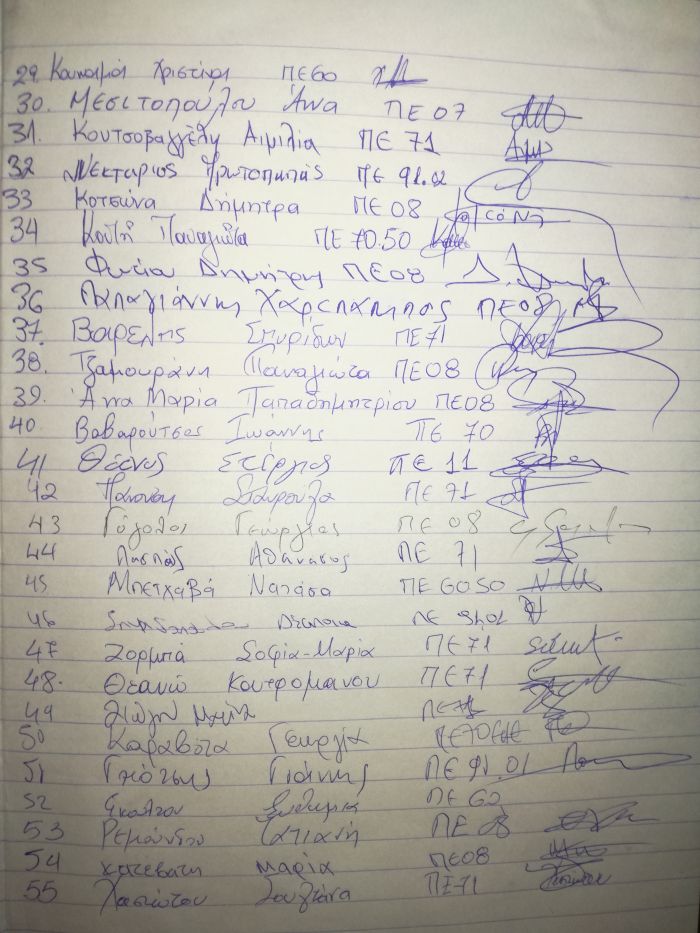 29. Χριστίνα ΠΕ60
30. Μεσιτοπούλου Άννα ΠΕ 07
31. Κουτσοβαγγέλη Αιμιλία ΠΕ 71
32 Νεκτάριος Πρωτοπαπάς ΠΕ 91.02
33 Κοτσώνα Δήμητρα ΠΕ 08
34 Κουτή Παναγιώτα ΠΕ 70.50
35 Δημήτρης ΠΕ08
36 Παπαγιάννης Χαράλαμπος ΠΕ08
37. Βαρέλης Σπυρίδων ΠΕ71
38. Τζαμουράνη Παναγιώτα ΠΕ08
39. Άννα Μαρία Παπαδημητρίου ΠΕ08
40 Βαβαρούτσος Ιωάννης ΠΕ 70
41 Θεάνος Στέργιος ΠΕ 11
42 Σταυρούλα ΠΕ 71
43 Γόγολος Γεώργιος ΠΕ 08
44 Πασπάς Αθανάσιος ΠΕ 71
45 Μπετχαβά Νατάσα ΠΕ 6050
46 ΠΕ
47 Ζορμπά Σοφία-Μαρία ΠΕ71
48. Θεανώ Κουτρομάνου ΠΕ71
49 ΠΕ71
50 Καραβότα Γεωργία
51 Γκιότσης Γιάννης ΠΕ 91.01
52 ΠΕ 60
53 Ρεμούνδου Τατιανή ΠΕ 08
54 Κατέβατη Μαρία ΠΕ08
55 Χασιώτου Σουλτάνα ΠΕ71